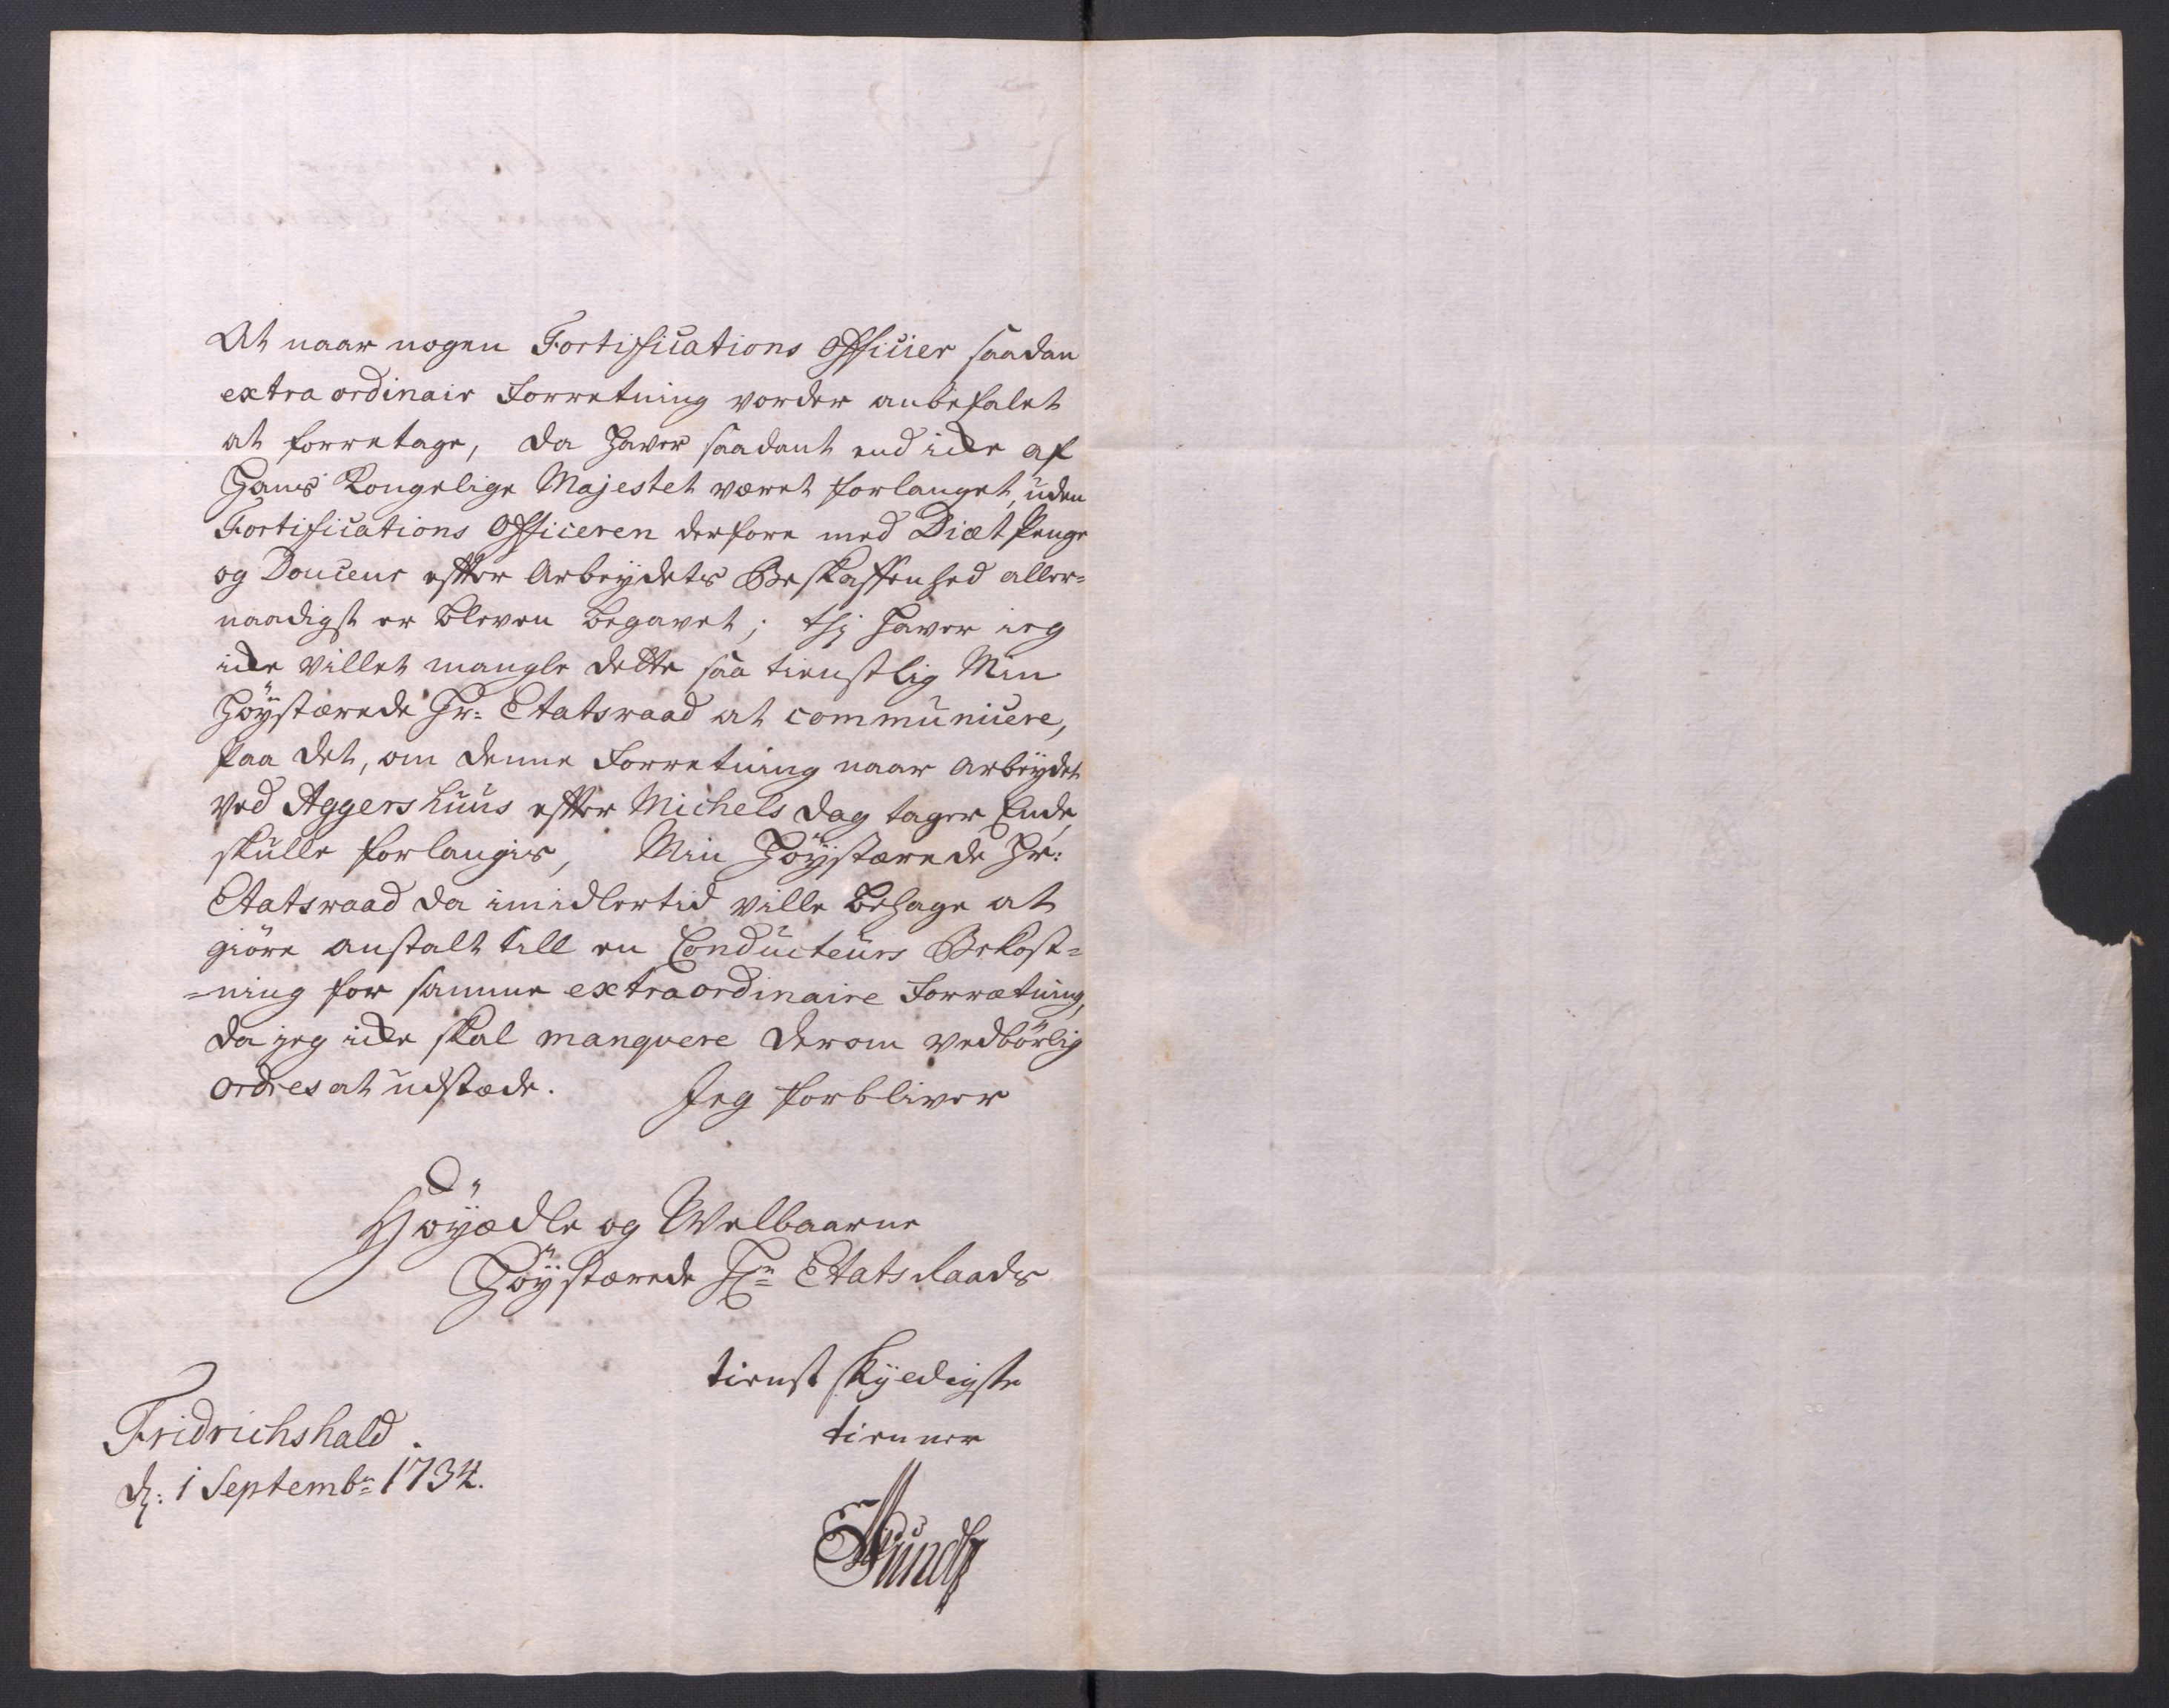 At naar nogen Fortifications Officier saadan
extra ordinair Forretning vorder anbefalet
at forretage, da haver saadant end icke af
Hans Kongelige Majestet været forlanget, uden
Fortifications Officeren derfore med Diæt penge
og Douceur efter Arbeydets Beskaffenhed aller=
naadigst er bleven begavet; thj haver ieg
icke villet mangle dette saa tienstlig Min
Höystærede Hr: Etatsraad at communicere,
paa det, om denne Forretning naar arbeydet
ved Aggershuus efter Michels dag tager Ende,
skulle forlangis, Min Höystærede Hr:
Etatsraad da imidlertid ville behage at
giöre anstalt till en Conducteurs Bekost=
=ning for samme extraordinaire Forrætning,
da jeg icke skal manquere derom vedbörlig
ordres at udstæde. Jeg forbliver
Höyædle og Welbaarne
Höystærede Hr= Etats Raads
tienst skyldigste
tienner
Fridrichshald.
d: 1 Septembr= 1734.